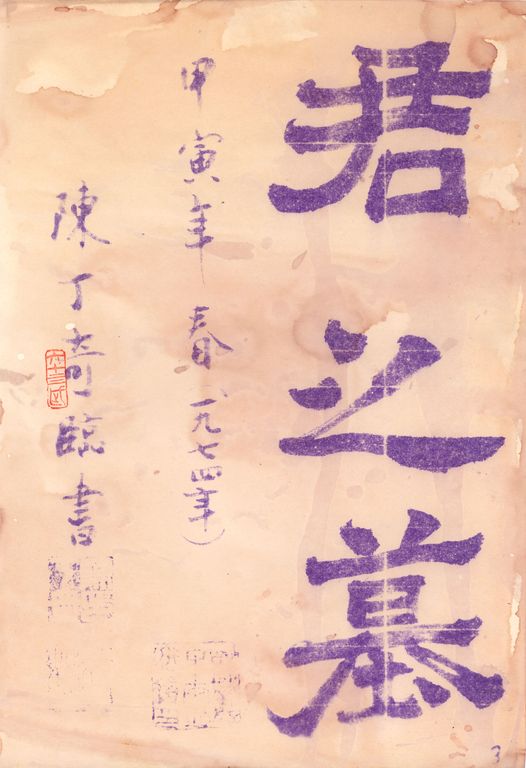 君之墓
甲寅年 春(一九七四年)
陳丁奇臨書
3